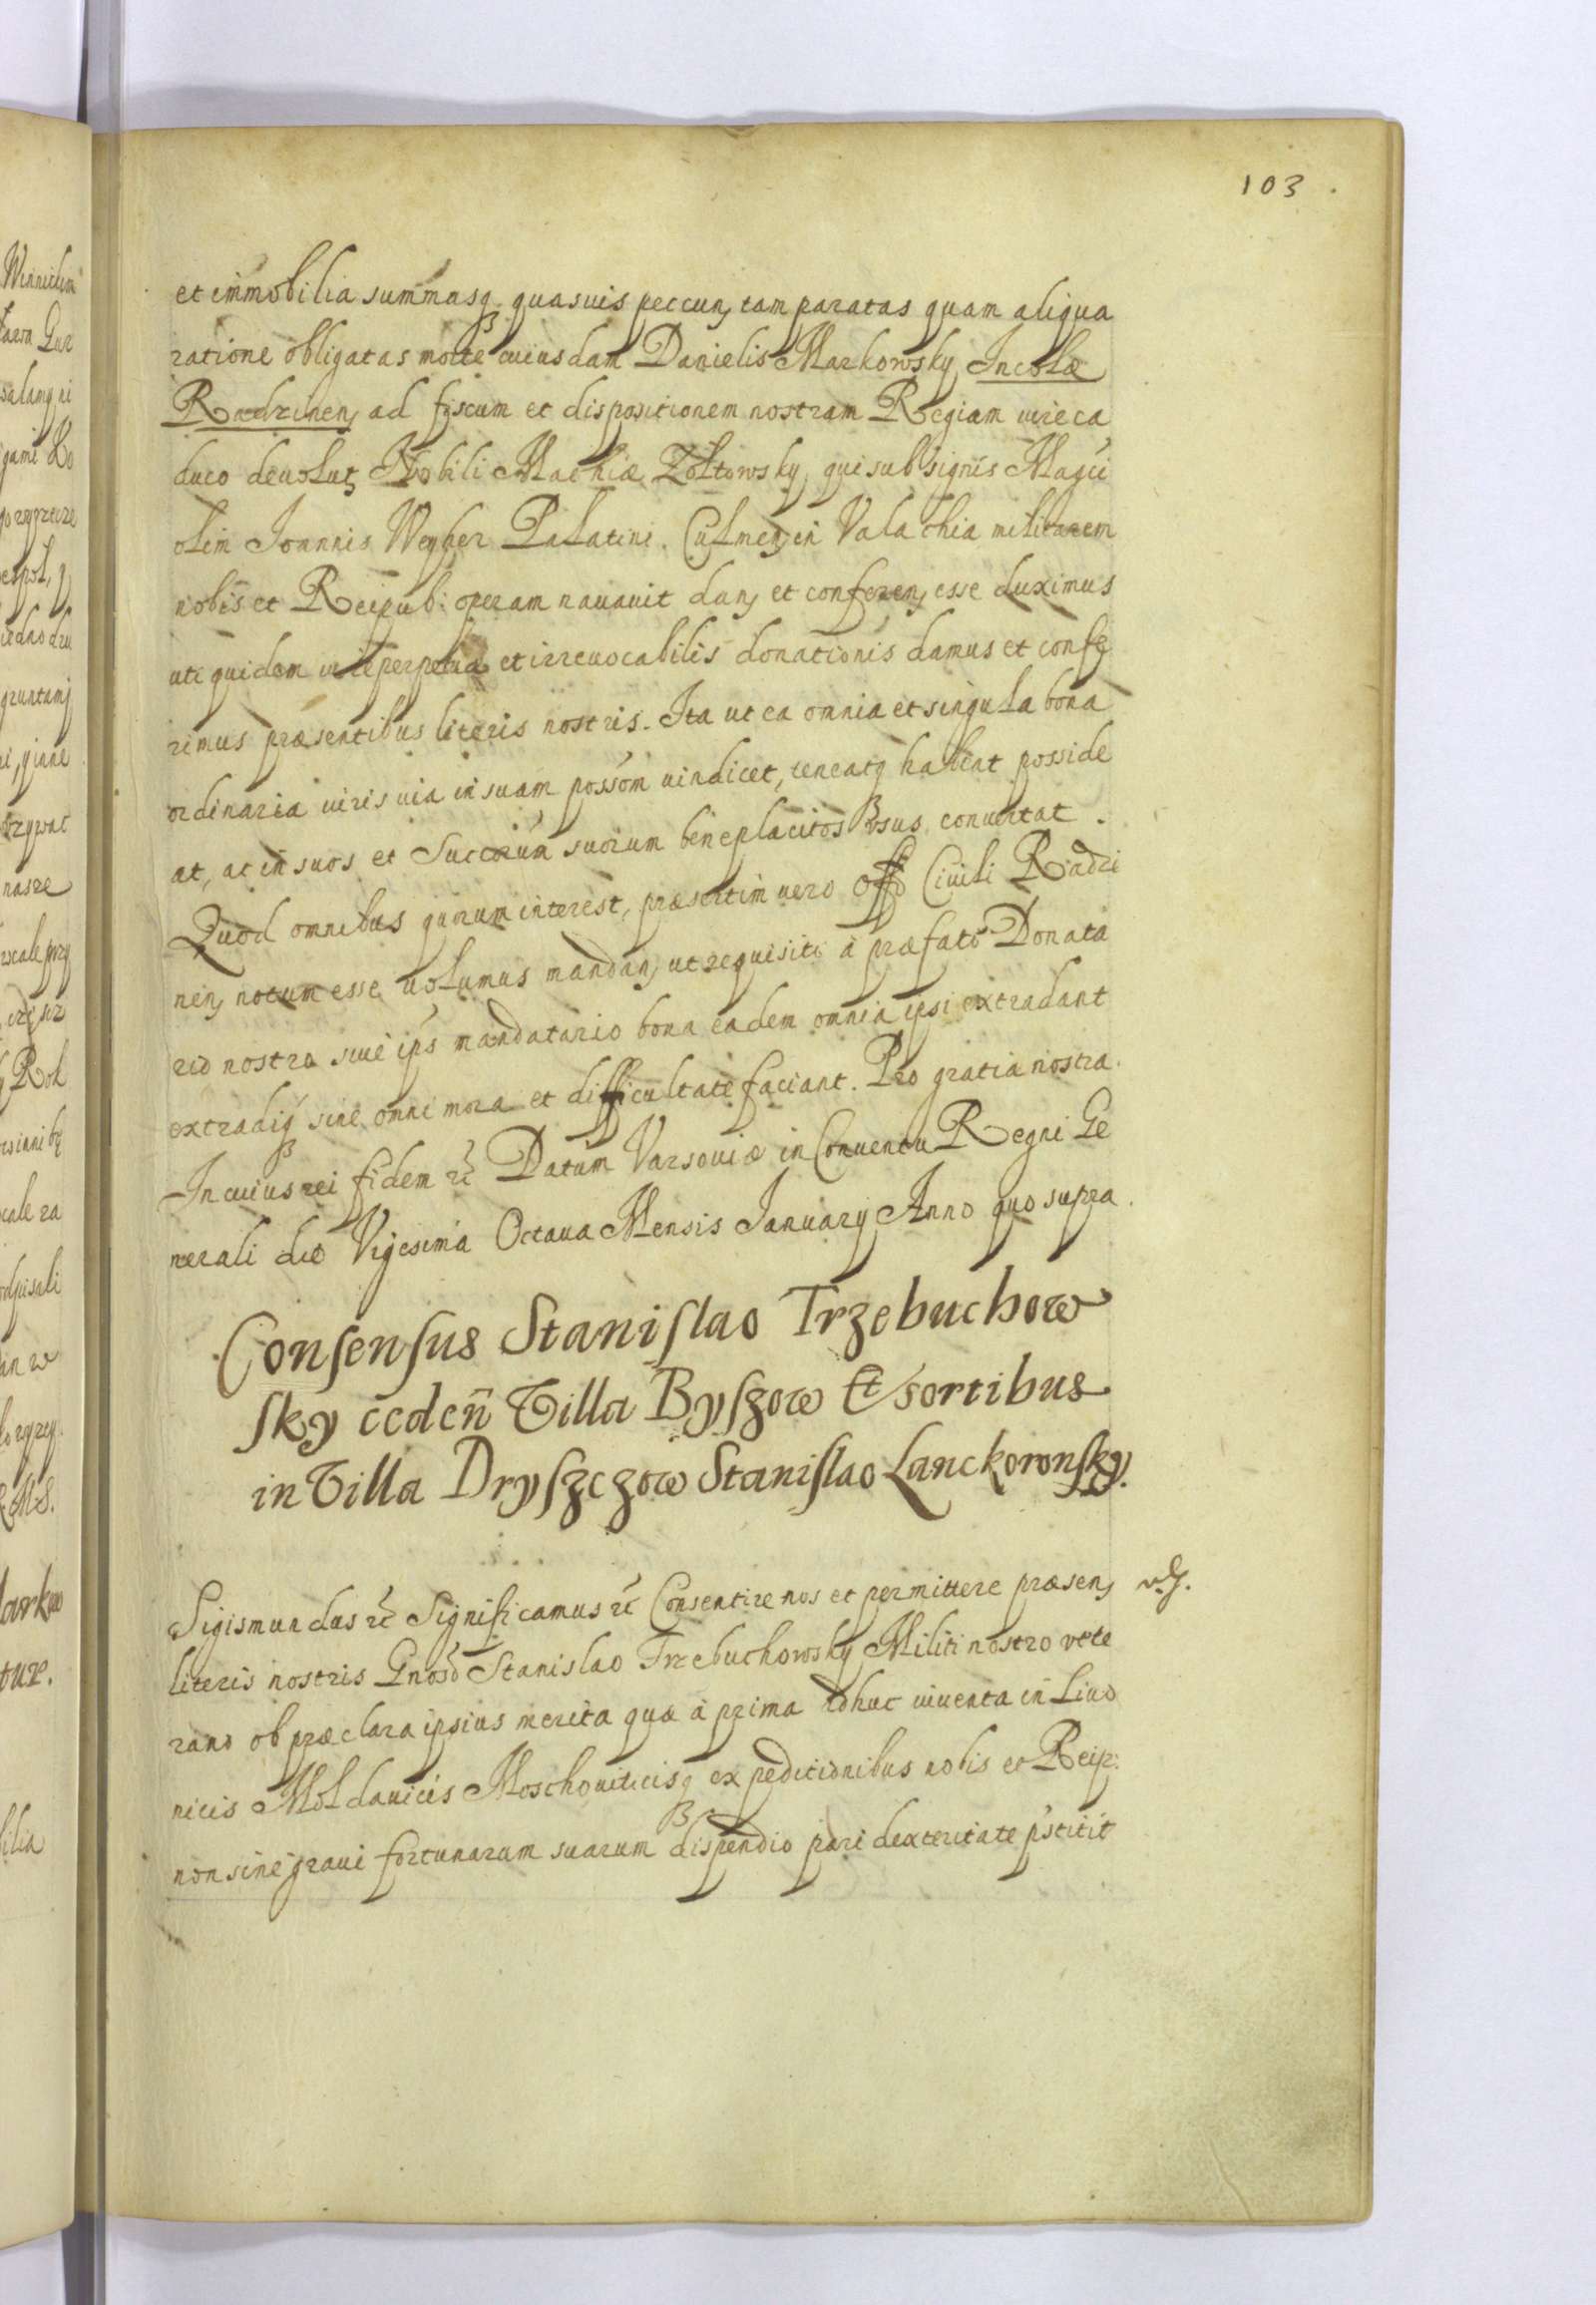 103
et immobilia summasq quasuis peccun, tam paratas quam aliqua
ratione obligatas morte cuiusdam Danielis Markowsky Incolæ
Radzinen, ad fiscum et dispositionem nostram Regiam iure ca
duco deuolut, Nobili Mathiæ Zoltowsky, qui sub signis Magci
olim Joannis Weyher Palatini Culmen, in Valachia militarem
nobis et Reipub: operam nauauit dan, et conferen, esse duximus
uti quidem iure perpetuæ et irreuocabilis donationis damus et confe
rimus præsentibus literis nostris. Ita ut ea omnia et singula bona
ordinaria iuris uia in suam possom uindicet, teneatq habeat posside
at, ac in suos et Succorum suorum beneplacitos usus conuertat.
Quod omnibus quorum interest, præsertim uero Offo Ciuili Radzi
nen, notum esse uolumus mandan, ut requisiti à præfato Donata
rio nostro siue ips mandatario bona eadem omnia ipsi extradant
extradiq sine omni mora et difficultate faciant. Pro gratia nostra.
In cuius rei fidem rc Datum Varsouiæ in Conuentu Regni Ge
nerali die Vigesima Octaua Mensis January Anno quo supra.
Consensus Stanislao Trzebuchow
sky ceden Villa Byszow Et sortibus
in Villa Dryszczow Stanislao Lanckoronsky.
Sigismundus rc Significamus rc Consentire nos et permittere præsen,
literis nostris Gnoso Stanislao Trzebuchowsky Militi nostro vete
rano ob præclara ipsius merita quæ à prima adhuc iuuenta in Liuo
nicis Moldauicis Moschouiticisq expeditionibus nobis et Reip:
non sine graui fortunarum suarum dispendio pari dexteritate pstitit